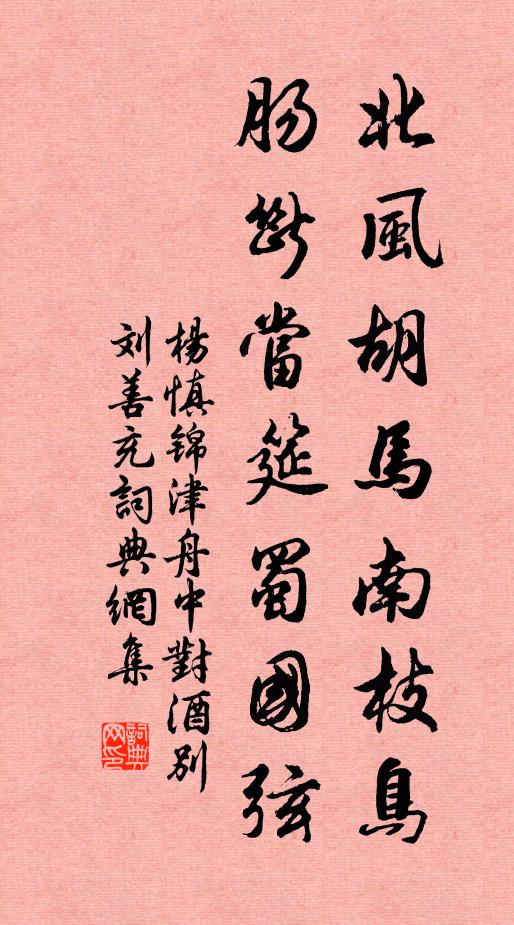 北風胡馬南枝鳥
肠斷當筵蜀國弦
楊慎锦津舟中對酒别
刘善充詞典網集
詞典网印